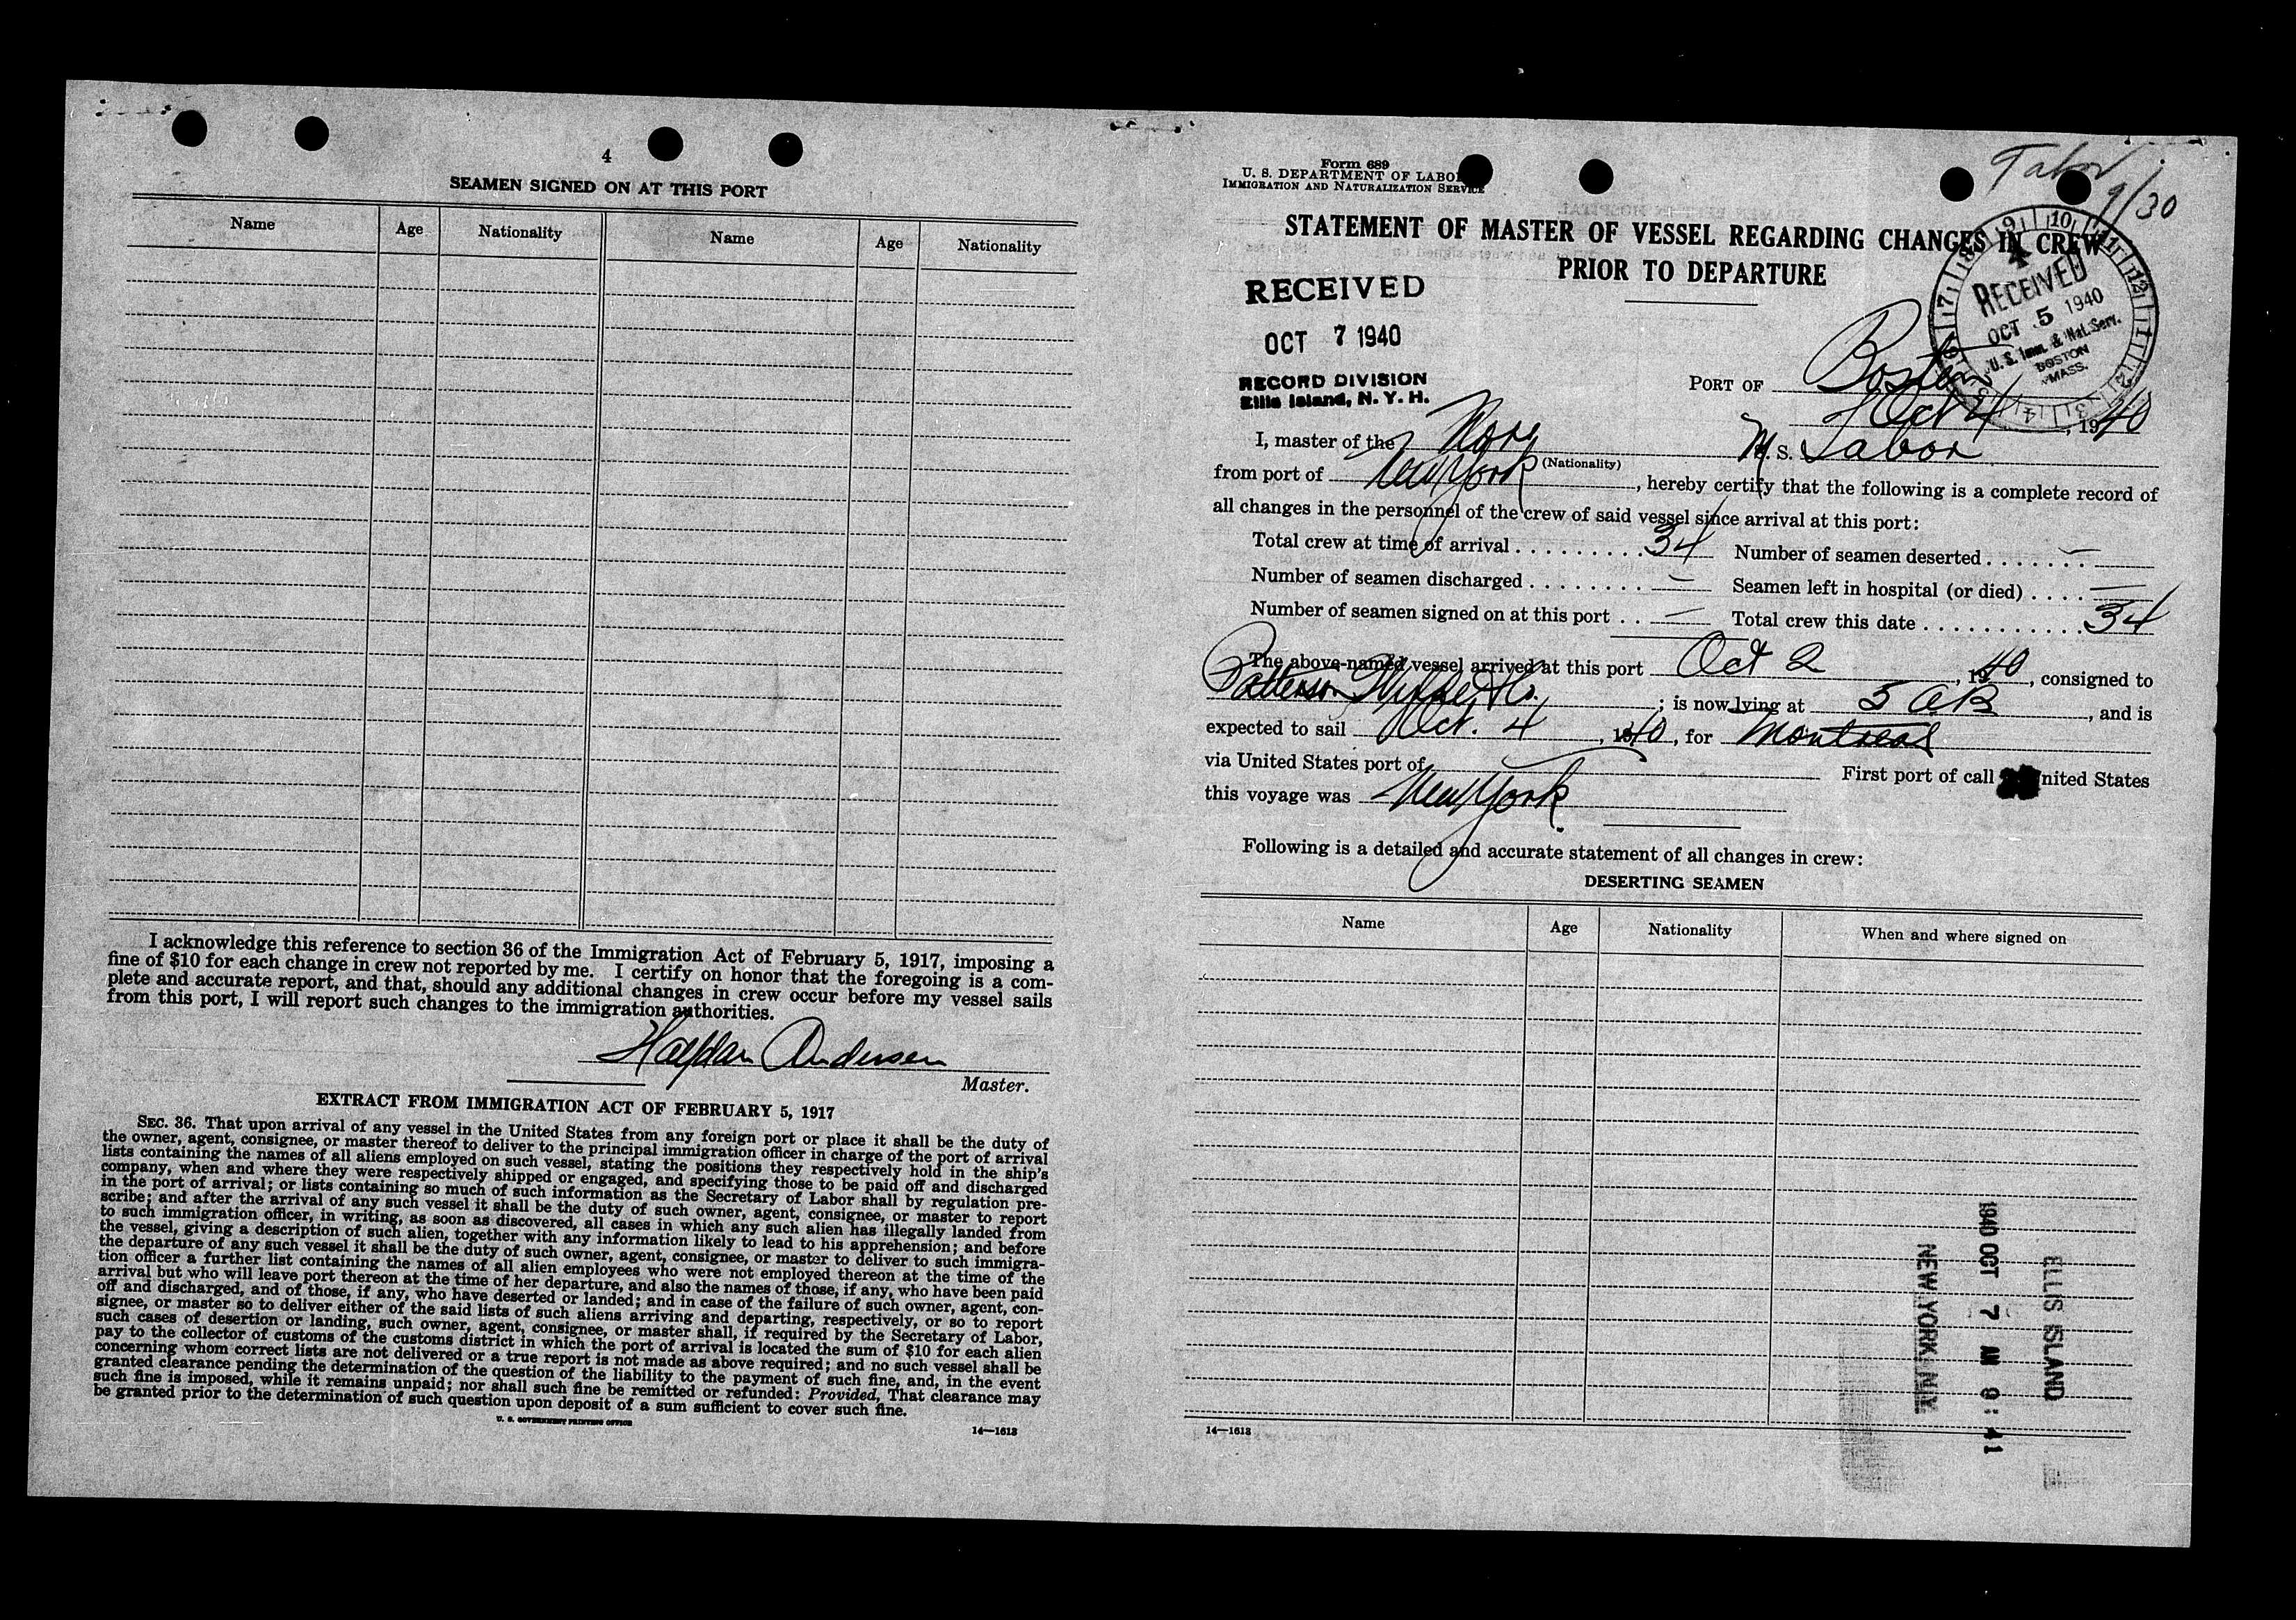 4
SEAMEN SIGNED ON AT THIS PORT
Name Age Nationality Name Age Nationality
I acknowledge this reference to section 36 of the Immigration Act of February 5, 1917, imposing a
fine of $10 for each change in crew not reported by me. I certify on honor that the foregoing is a com-
plete and accurate report, and that, should any additional changes in crew occur before my vessel sails
from this port, I will report such changes to the immigration authorities.
Halfdan Andersen
Master.
EXTRACT FROM IMMIGRATION ACT OF FEBRUARY 5, 1917
SEC. 36. That upon arrival of any vessel in the United States from any foreign port or place it shall be the duty of
the owner, agent, consignee, or master thereof to deliver to the principal immigration officer in charge of the port of arrival
lists containing the names of all aliens employed on such vessel, stating the positions they respectively hold in the ship's
company, when and where they were respectively shipped or engaged, and specifying those to be paid off and discharged
in the port of arrival; or lists containing so much of such information as the Secretary of Labor shall by regulation pre-
scribe; and after the arrival of any such vessel it shall be the duty of such owner, agent, consignee, or master to report
to such immigration officer, in writing, as soon as discovered, all cases in which any such alien has illegally landed from
the vessel, giving a description of such alien, together with any information likely to lead to his apprehension; and before
the departure of any such vessel it shall be the duty of such owner, agent, consignee, or master to deliver to such immigra-
tion officer a further list containing the names of all alien employees who were not employed thereon at the time of the
arrival but who will leave port thereon at the time of her departure, and also the names of those, if any, who have been paid
off and discharged, and of those, if any, who have deserted or landed; and in case of the failure of such owner, agent, con-
signee, or master so to deliver either of the said lists of such aliens arriving and departing, respectively, or so to report
such cases of desertion or landing, such owner, agent, consignee, or master shall, if required by the Secretary of Labor,
pay to the collector of customs of the customs district in which the port of arrival is located the sum of $10 for each alien
concerning whom correct lists are not delivered or a true report is not made as above required; and no such vessel shall be
granted clearance pending the determination of the question of the liability to the payment of such fine, and, in the event
such fine is imposed, while it remains unpaid; nor shall such fine be remitted or refunded: Provided, That clearance may
be granted prior to the determination of such question upon deposit of a sum sufficient to cover such fine.
U. S. GOVERNMENT PRINTING OFFICE
14—1613
Tabor
9/30
Form 689
U. S. DEPARTMENT OF LABOR
IMMIGRATION AND NATURALIZATION SERVICE
STATEMENT OF MASTER OF VESSEL REGARDING CHANGES IN CREW
PRIOR TO DEPARTURE
RECEIVED
OCT 7 1940
RECORD DIVISION
Ellis Island, N. Y. H.
RECEIVED
OCT 5 1940
U. S. Imm. & Nat. Serv.
BOSTON
MASS.
PORT OF Boston
Oct 4, 1940
I, master of the Nor M. S. Tabor
(Nationality)
from port of New York, hereby certify that the following is a complete record of
all changes in the personnel of the crew of said vessel since arrival at this port:
Total crew at time of arrival . . . . . . . . . 34 Number of seamen deserted . . . . . . . —
Number of seamen discharged . . . . . . . . — Seamen left in hospital (or died) . . . . —
Number of seamen signed on at this port . . — Total crew this date . . . . . . . . . . . 34
The above-named vessel arrived at this port Oct 2, 1940, consigned to
Patterson Wylde & Co.; is now lying at 5 AB, and is
expected to sail Oct. 4, 1940, for Montreal
via United States port of — First port of call United States
this voyage was New York.
Following is a detailed and accurate statement of all changes in crew:
DESERTING SEAMEN
Name Age Nationality When and where signed on
ELLIS ISLAND
1940 OCT 7 AM 9:41
NEW YORK N.Y.
14—1613